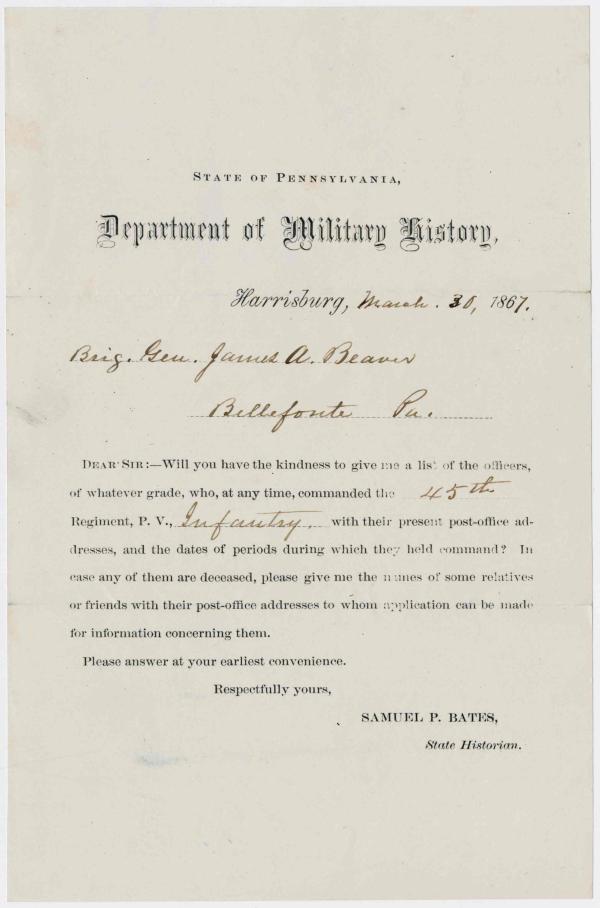 STATE OF PENNSYLVANIA,
Department of Military History,
Harrisburg, March. 30, 1867.
Brig. Gen. James A. Beaver
Bellefonte Pa.
DEAR SIR:—Will you have the kindness to give me a list of the officers,
of whatever grade, who, at any time, commanded the 45th
Regiment, P. V., Infantry. with their present post-office ad-
dresses, and the dates of periods during which they held command? In
case any of them are deceased, please give me the names of some relatives
or friends with their post-office addresses to whom application can be made
for information concerning them.
Please answer at your earliest convenience.
Respectfully yours,
SAMUEL P. BATES,
State Historian.